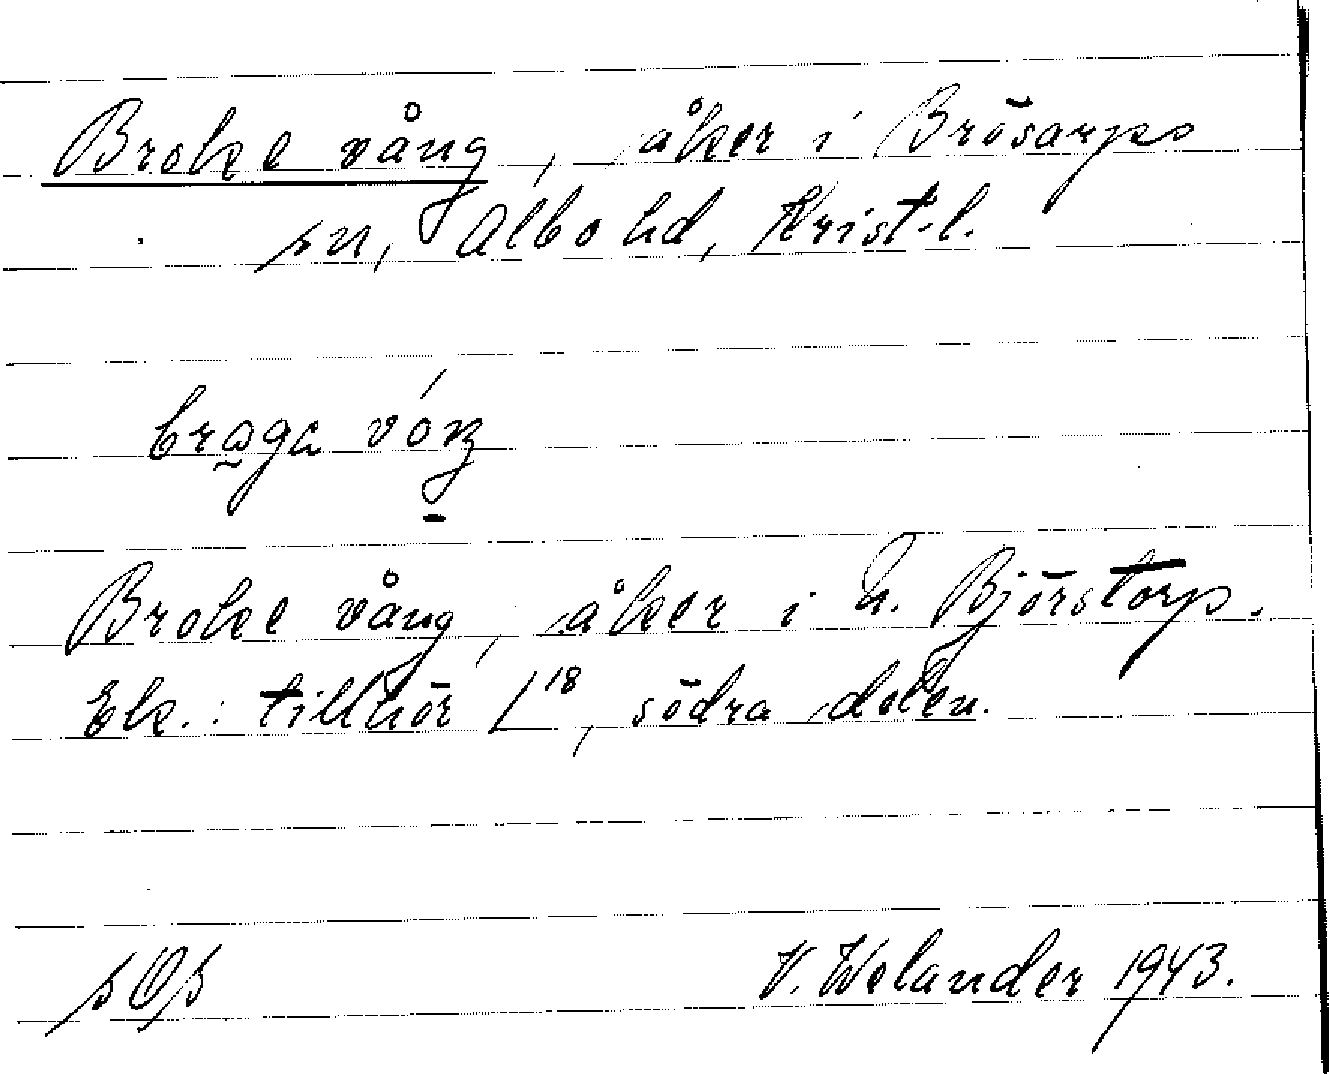 Broke vång, åker i Brösarps
sn, Albo hd, Krist. l.
braga vóŋ
Broke vång, åker i n. Björstorp.
Ek.: tillhör L 18, södra delen.
V. Welander 1943.